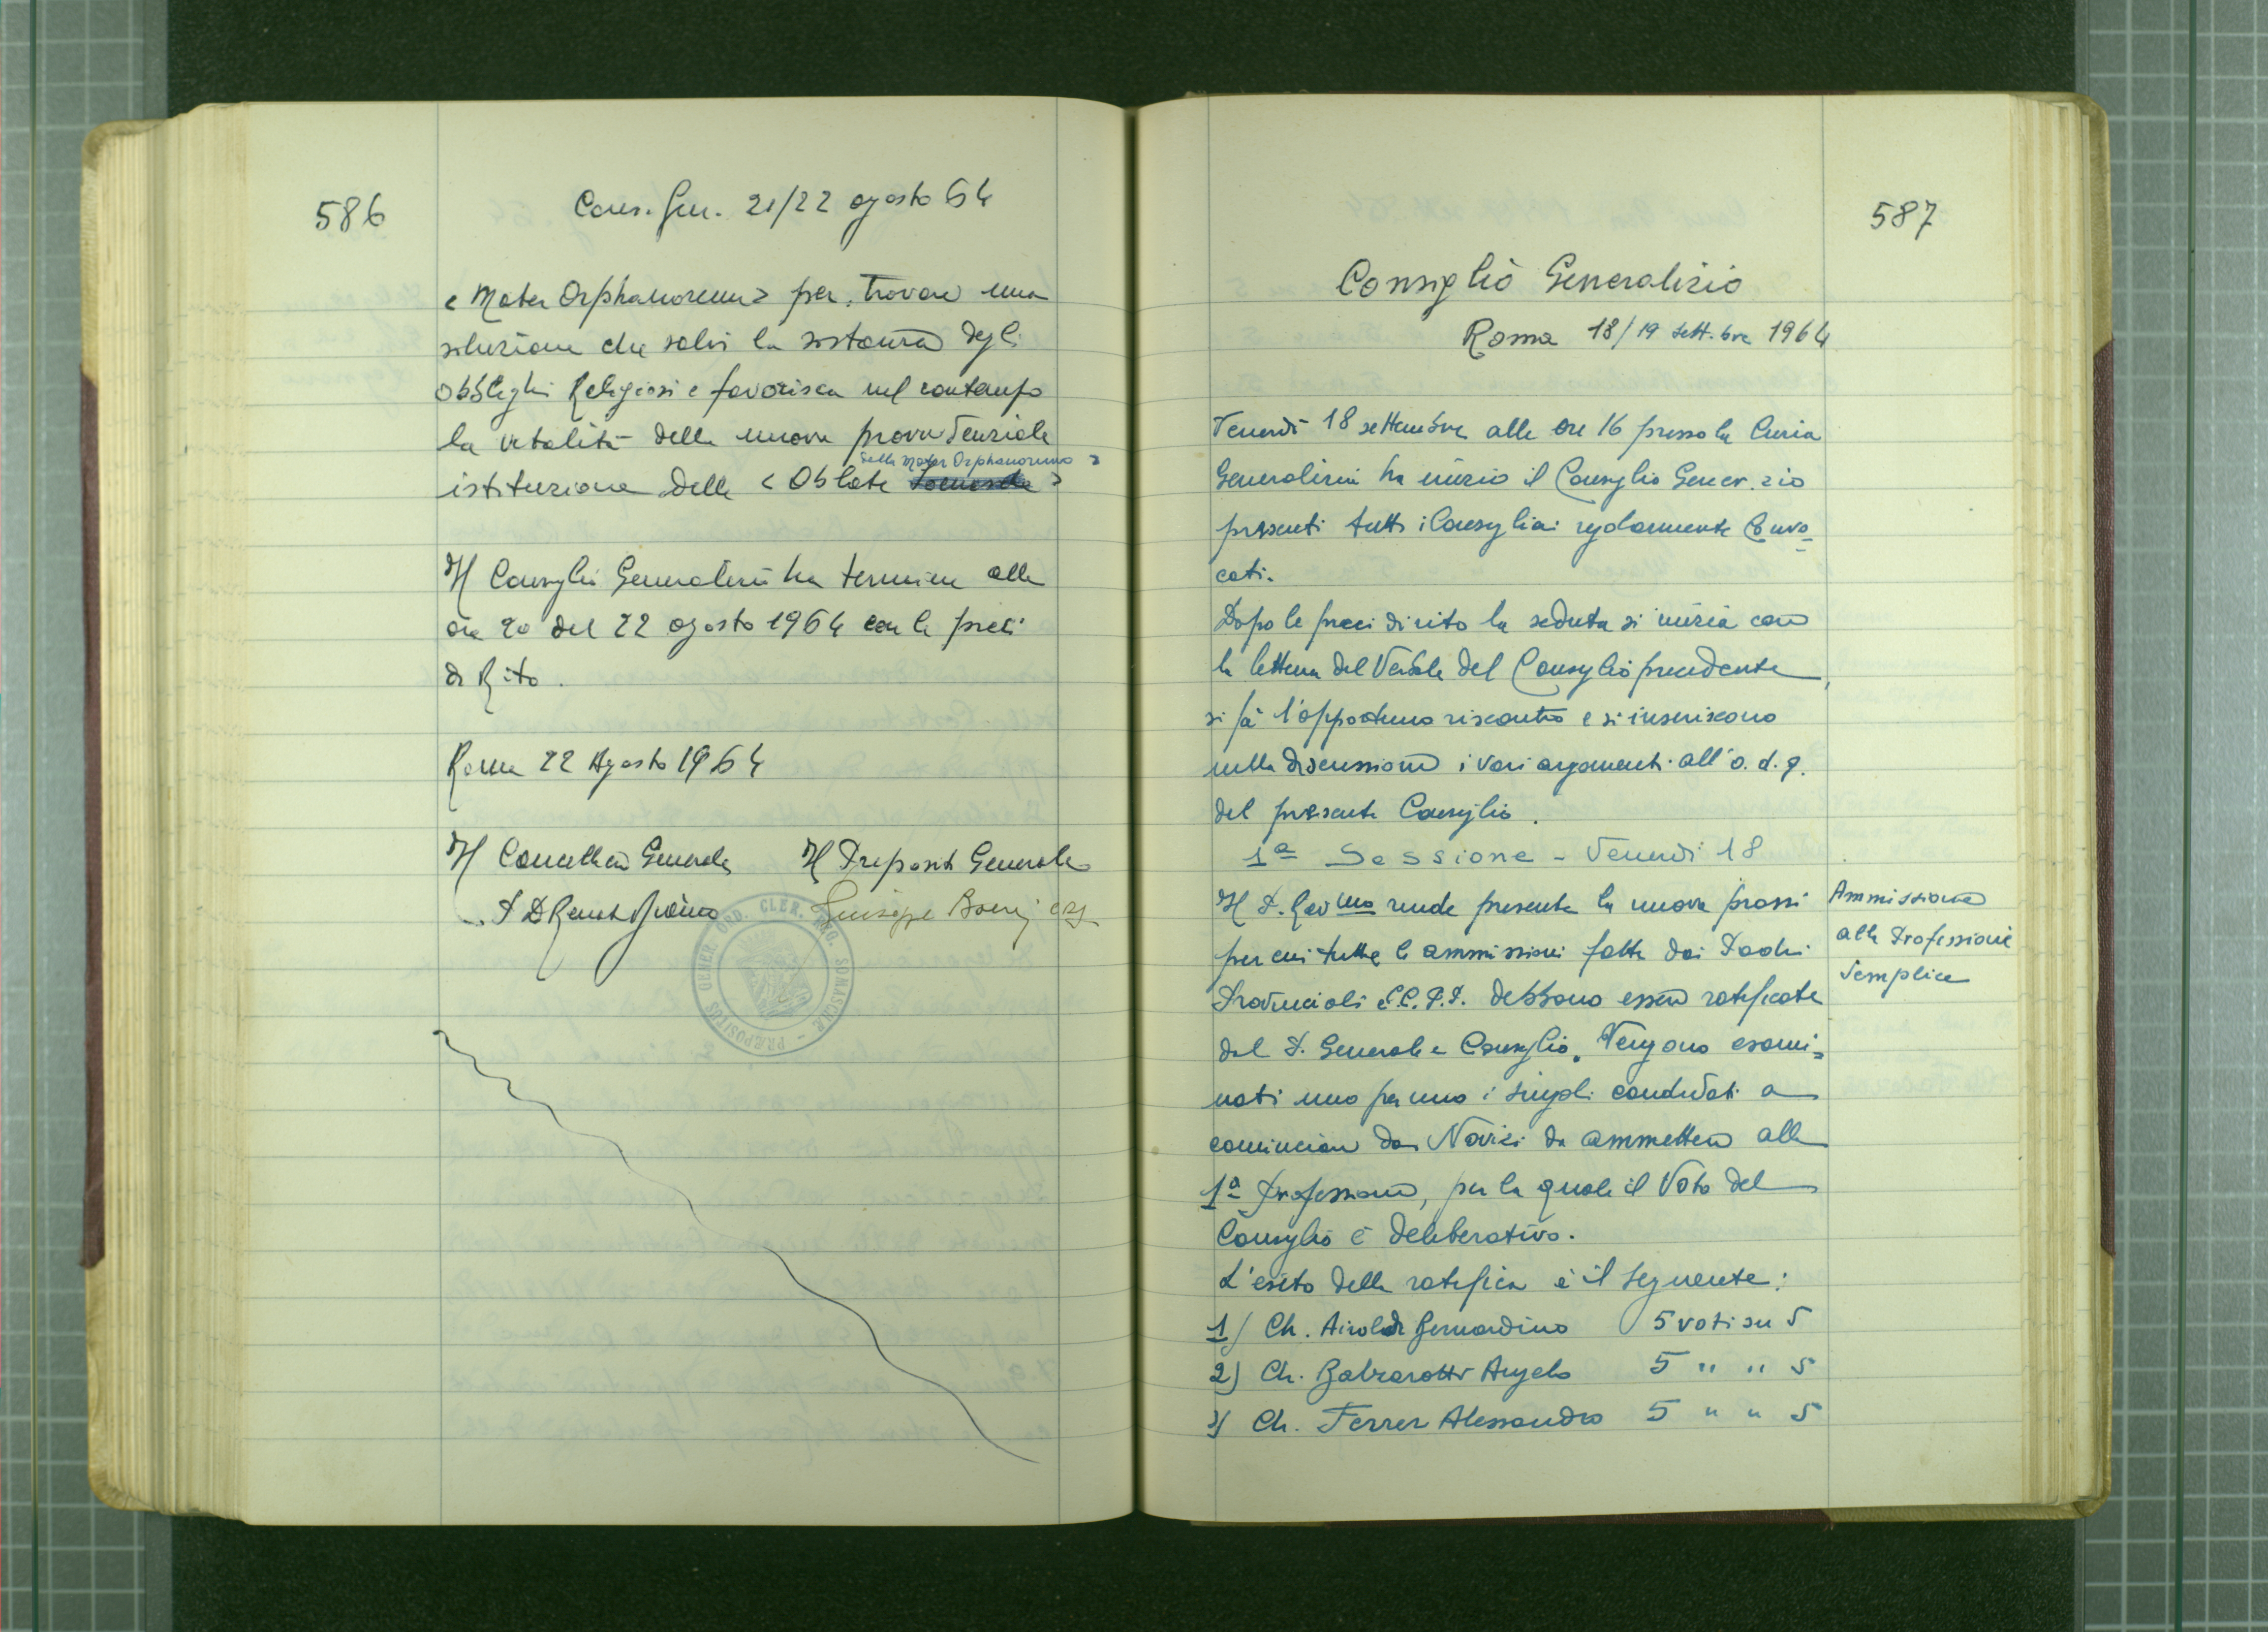 586
Cons. Gen. 21/22 agosto 64
< Mater Orphanorum > per trovare una
soluzione che salvi la sostanza degli
obblighi Religiosi e favorisca nel contempo
la vitalità della nuova provvidenziale
della Mater Orphanorum >
istituzione delle < Oblate Somasche >
Il Consiglio Generalizio ha termine alle
ore 20 del 22 agosto 1964 con le preci
di Rito.
Roma 22 Agosto 1964
Il Cancelliere Generale Il Preposito Generale
Giuseppe Boeri crs
PRÆPOSITUS GENER. ORD. CLER. REG. SOMASCHÆ
587
Consiglio Generalizio
Roma 18/19 sett.bre 1964
Venerdì 18 settembre alle ore 16 presso la Curia
Generalizia ha inizio il Consiglio Gener.zio
presenti tutti i Consiglieri regolarmente Convo=
cati.
Dopo le preci di rito la seduta si inizia con
la lettura del Verbale del Consiglio precedente,
si fa l'opportuno riscontro e si inseriscono
nella discussione i vari argomenti all'o.d.g.
del presente Consiglio.
1ª Sessione - Venerdì 18
Il P. Rev mo rende presente la nuova prassi
per cui tutte le ammissioni fatte dai Padri
Provinciali e C.C.P.P. debbono essere ratificate
dal P. Generale e Consiglio. Vengono esami=
nati uno per uno i singoli candidati a
cominciare dai Novizi da ammettere alla
1ª Professione, per la quale il Voto del
Consiglio è deliberativo.
L'esito della ratifica è il seguente:
1) Ch. Airoldi Bernardino 5 voti su 5
2) Ch. Balzarotti Angelo 5 " " 5
3) Ch. Ferrer Alessandro 5 " " 5
Ammissione
alla Professione
Semplice